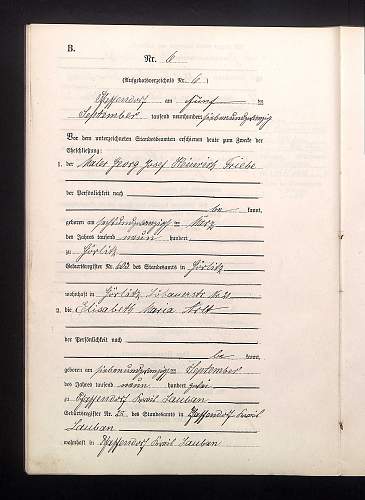 B.
Nr. 6
(Aufgebotsverzeichnis Nr. 6)
Pfaffendorf am fünf ten
September tausend neunhundert siebenundzwanzig
Vor dem unterzeichneten Standesbeamten erschienen heute zum Zwecke der
Eheschließung:
1. der Maler Georg Josef Heinrich Friebe
der Persönlichkeit nach
be kannt,
geboren am sechsundzwanzigsten März
des Jahres tausend neun hundert
zu Görlitz
Geburtsregister Nr. 602 des Standesamts in Görlitz
wohnhaft in Görlitz Löbauerstr. No 21
2. die Elisabeth Maria
der Persönlichkeit nach
be kannt,
geboren am siebenundzwanzigsten September
des Jahres tausend neun hundert zwei
in Pfaffendorf Kreis Lauban
Geburtsregister Nr. 25 des Standesamts in Pfaffendorf Kreis
Lauban
wohnhaft in Pfaffendorf Kreis Lauban